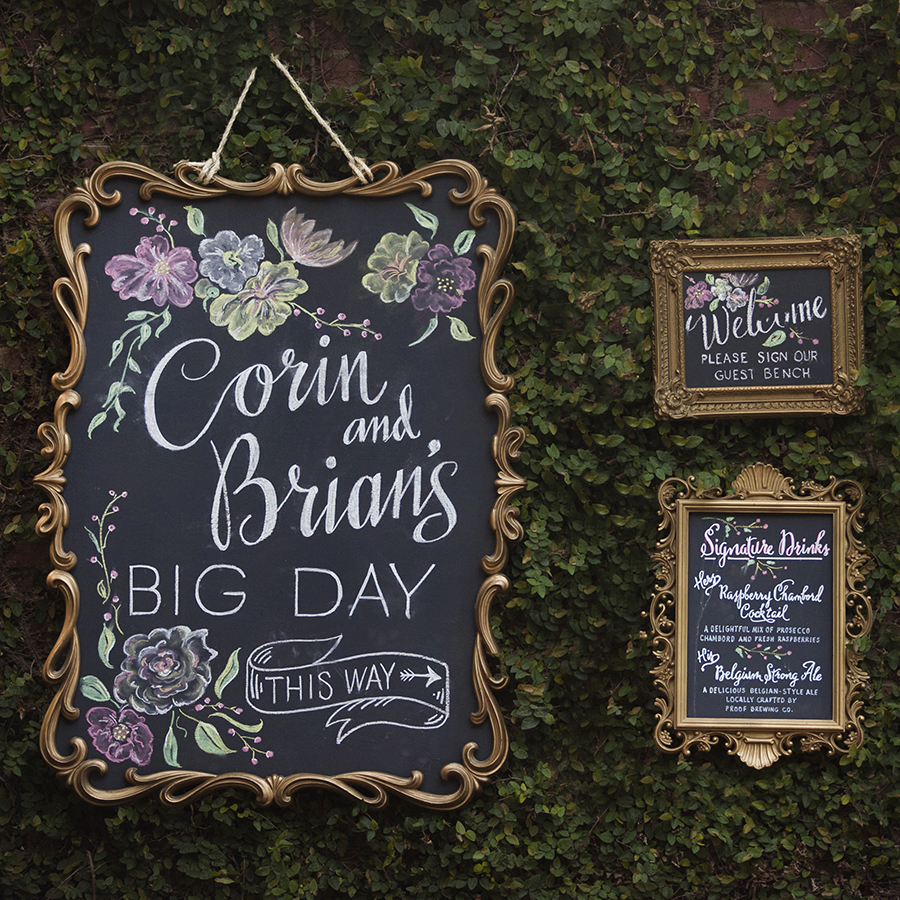 Corin
and
Brian's
BIG DAY
THIS WAY
Welcome
PLEASE SIGN OUR
GUEST BENCH
Signature Drinks
Hers
Raspberry Chambord
Cocktail
A DELIGHTFUL MIX OF PROSECCO
CHAMBORD AND FRESH RASPBERRIES
His
Belgium Strong Ale
A DELICIOUS BELGIAN-STYLE ALE
LOCALLY CRAFTED BY
PROOF BREWING CO.